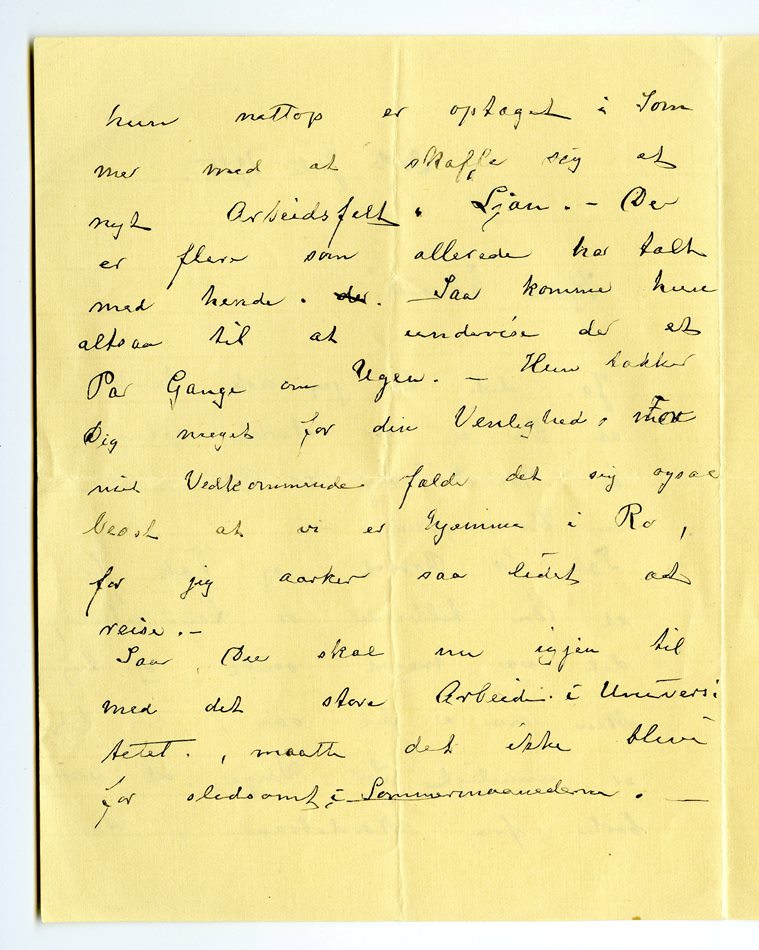 hun nattop er optaget i Som
mer med at skaffe sig et
nyt Arbeidsfelt. Ljan. – Der
er flere som allerede har talt
med hende. der. – Saa komme hun
altsaa til at undervise der et
Par Gange om Ugen. – Hun takker
Dig meget for din Venlighed. For
mit Vedkommende falde det sig ogsaa
beost at vi er hjemme i Ro,
for jeg aarker saa lidet at
reise. –
Saa, Du skal nu igjen til
med det store Arbeide i Universi
tetet., maatte det ikke blive
for slidsomt i Sommermaanederne. —